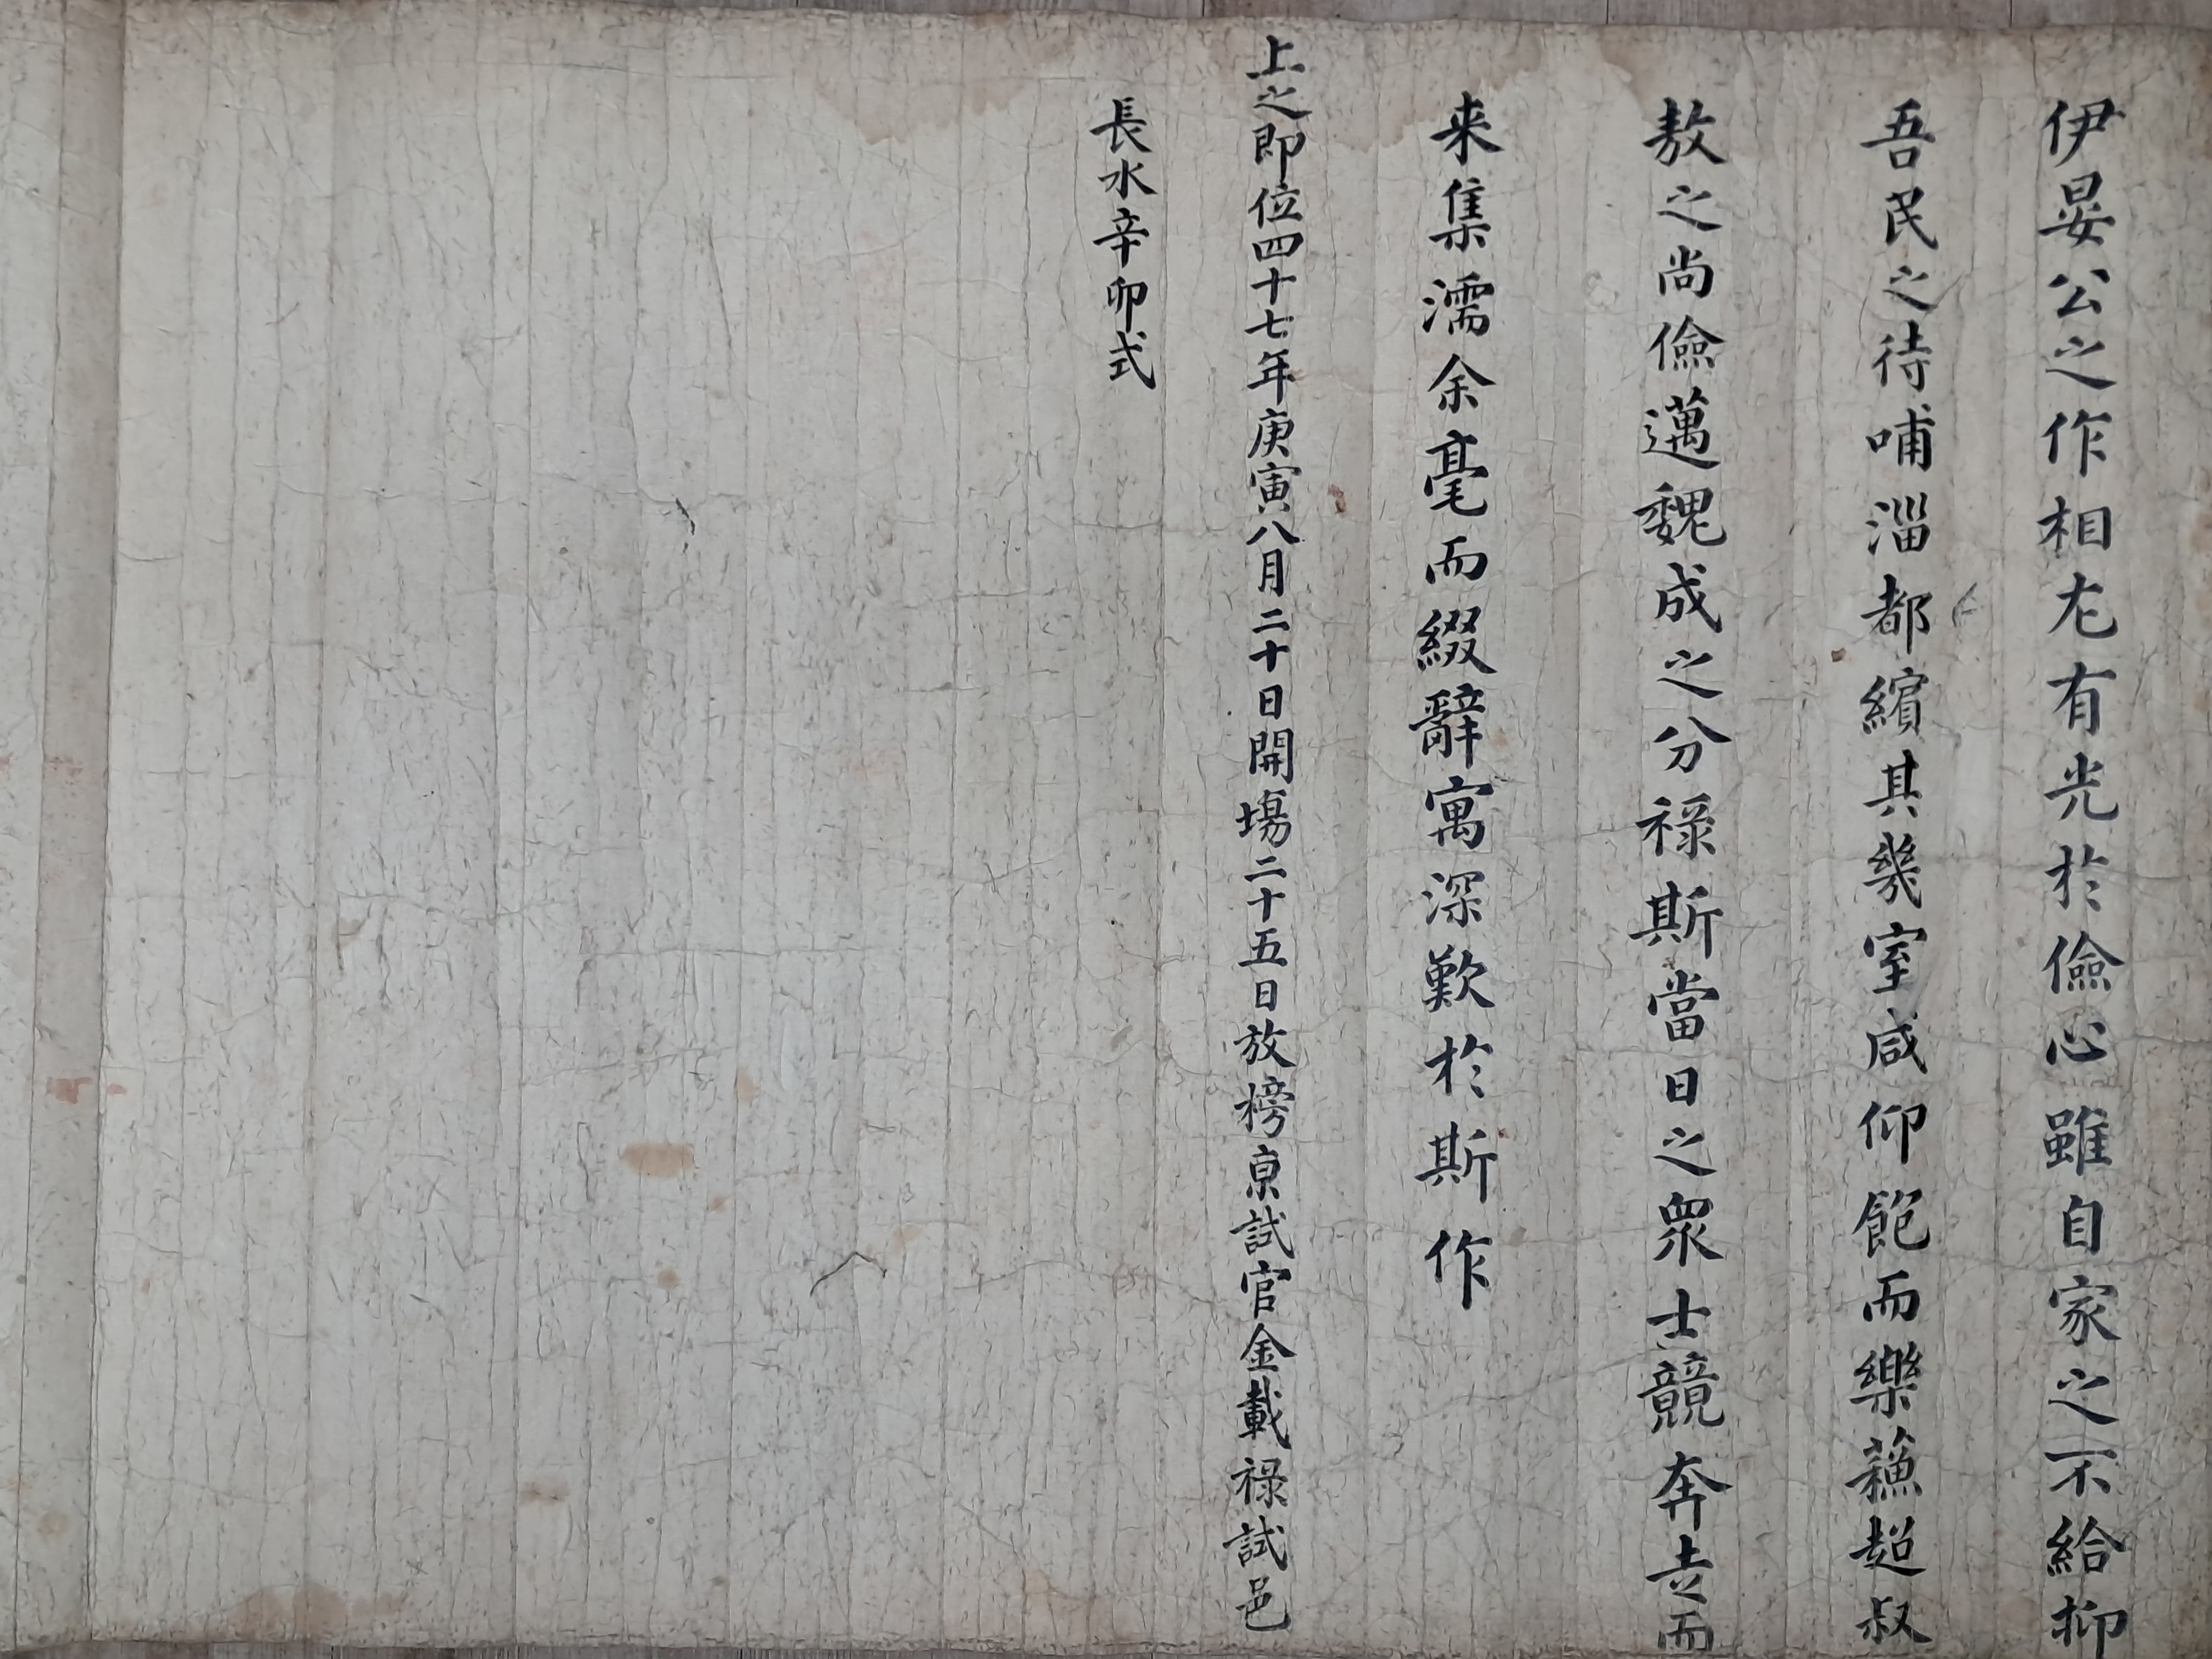 伊晏公之作相尤有光於儉心雖自家之不給抑
吾民之待哺淄都繽其幾室咸仰飽而樂蘓超叔
敖之尚儉邁魏成之分祿斯當日之衆士競奔走而
来集濡余毫而綴辭寓深歎於斯作
上之即位四十七年庚寅八月二十日開場二十五日放榜京試官金載祿試邑
長水辛卯式